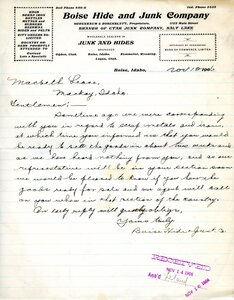 Bell Phone 555-R
Ind. Phone 1115
Boise Hide and Junk Company
AUERBACH & ROSENBLATT, Proprietors.
BRANCH OF UTAH JUNK COMPANY, SALT LAKE
WHOLESALE DEALERS IN
JUNK AND HIDES
Boise, Idaho,
Nov 12 1906
Macbeth Lease,
Mackay, Idaho.
Gentlemen:
Sometime ago we were corresponding
with you in regard to scrap metals and iron,
at which time you informed us that you would
be ready to sell the goods in about two weeks and
as we have heard nothing from you, and as our
representative will be in your section soon
we would be pleased to know if you have the
goods ready for sale and our agent will call
on you when in that section of the country.
An early reply will greatly oblige,
Yours truly,
Boise Hide & Junk Co
RECEIVED
NOV 14 1906
Ans'd
NOV 14 1906